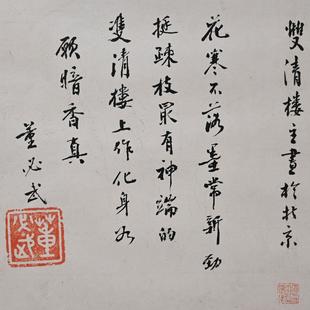 雙清樓主畫於北京
花寒不落墨常新勁
挺疎枝最有神端的
雙清樓上作化身如
願暗香真
董必武
董必武